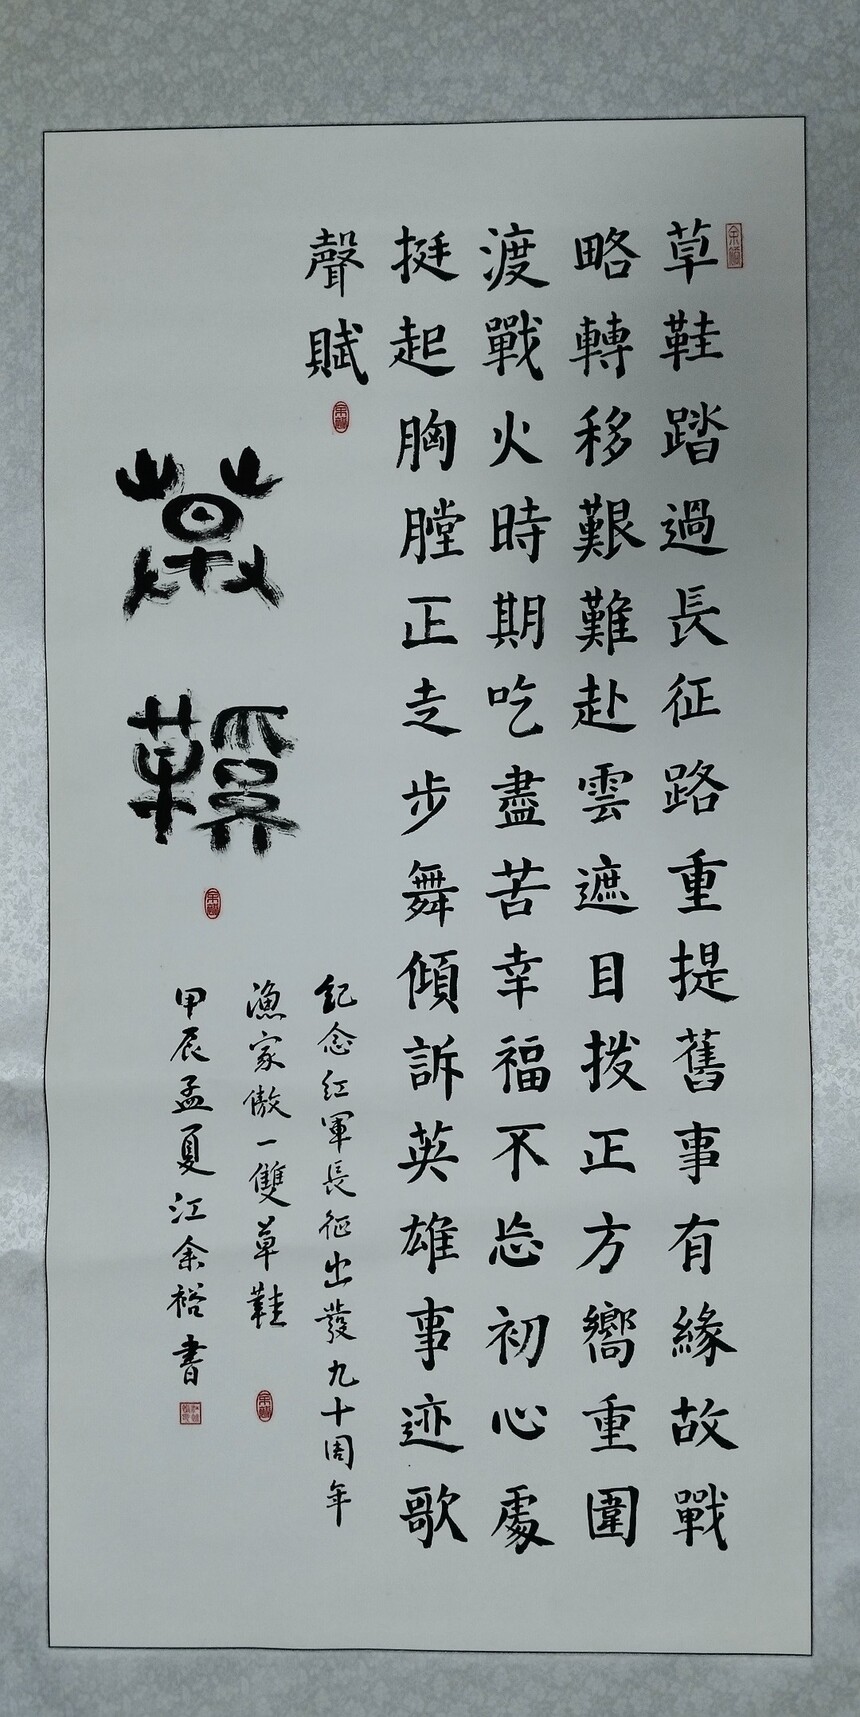 草鞋踏過長征路重提舊事有緣故戰
略轉移艱難赴雲遮目撥正方嚮重圍
渡戰火時期吃盡苦幸福不忘初心處
挺起胸膛正走步舞傾訴英雄事迹歌
聲賦
草鞋
紀念紅軍長征出發九十周年
漁家傲一雙草鞋
甲辰孟夏江余裕書